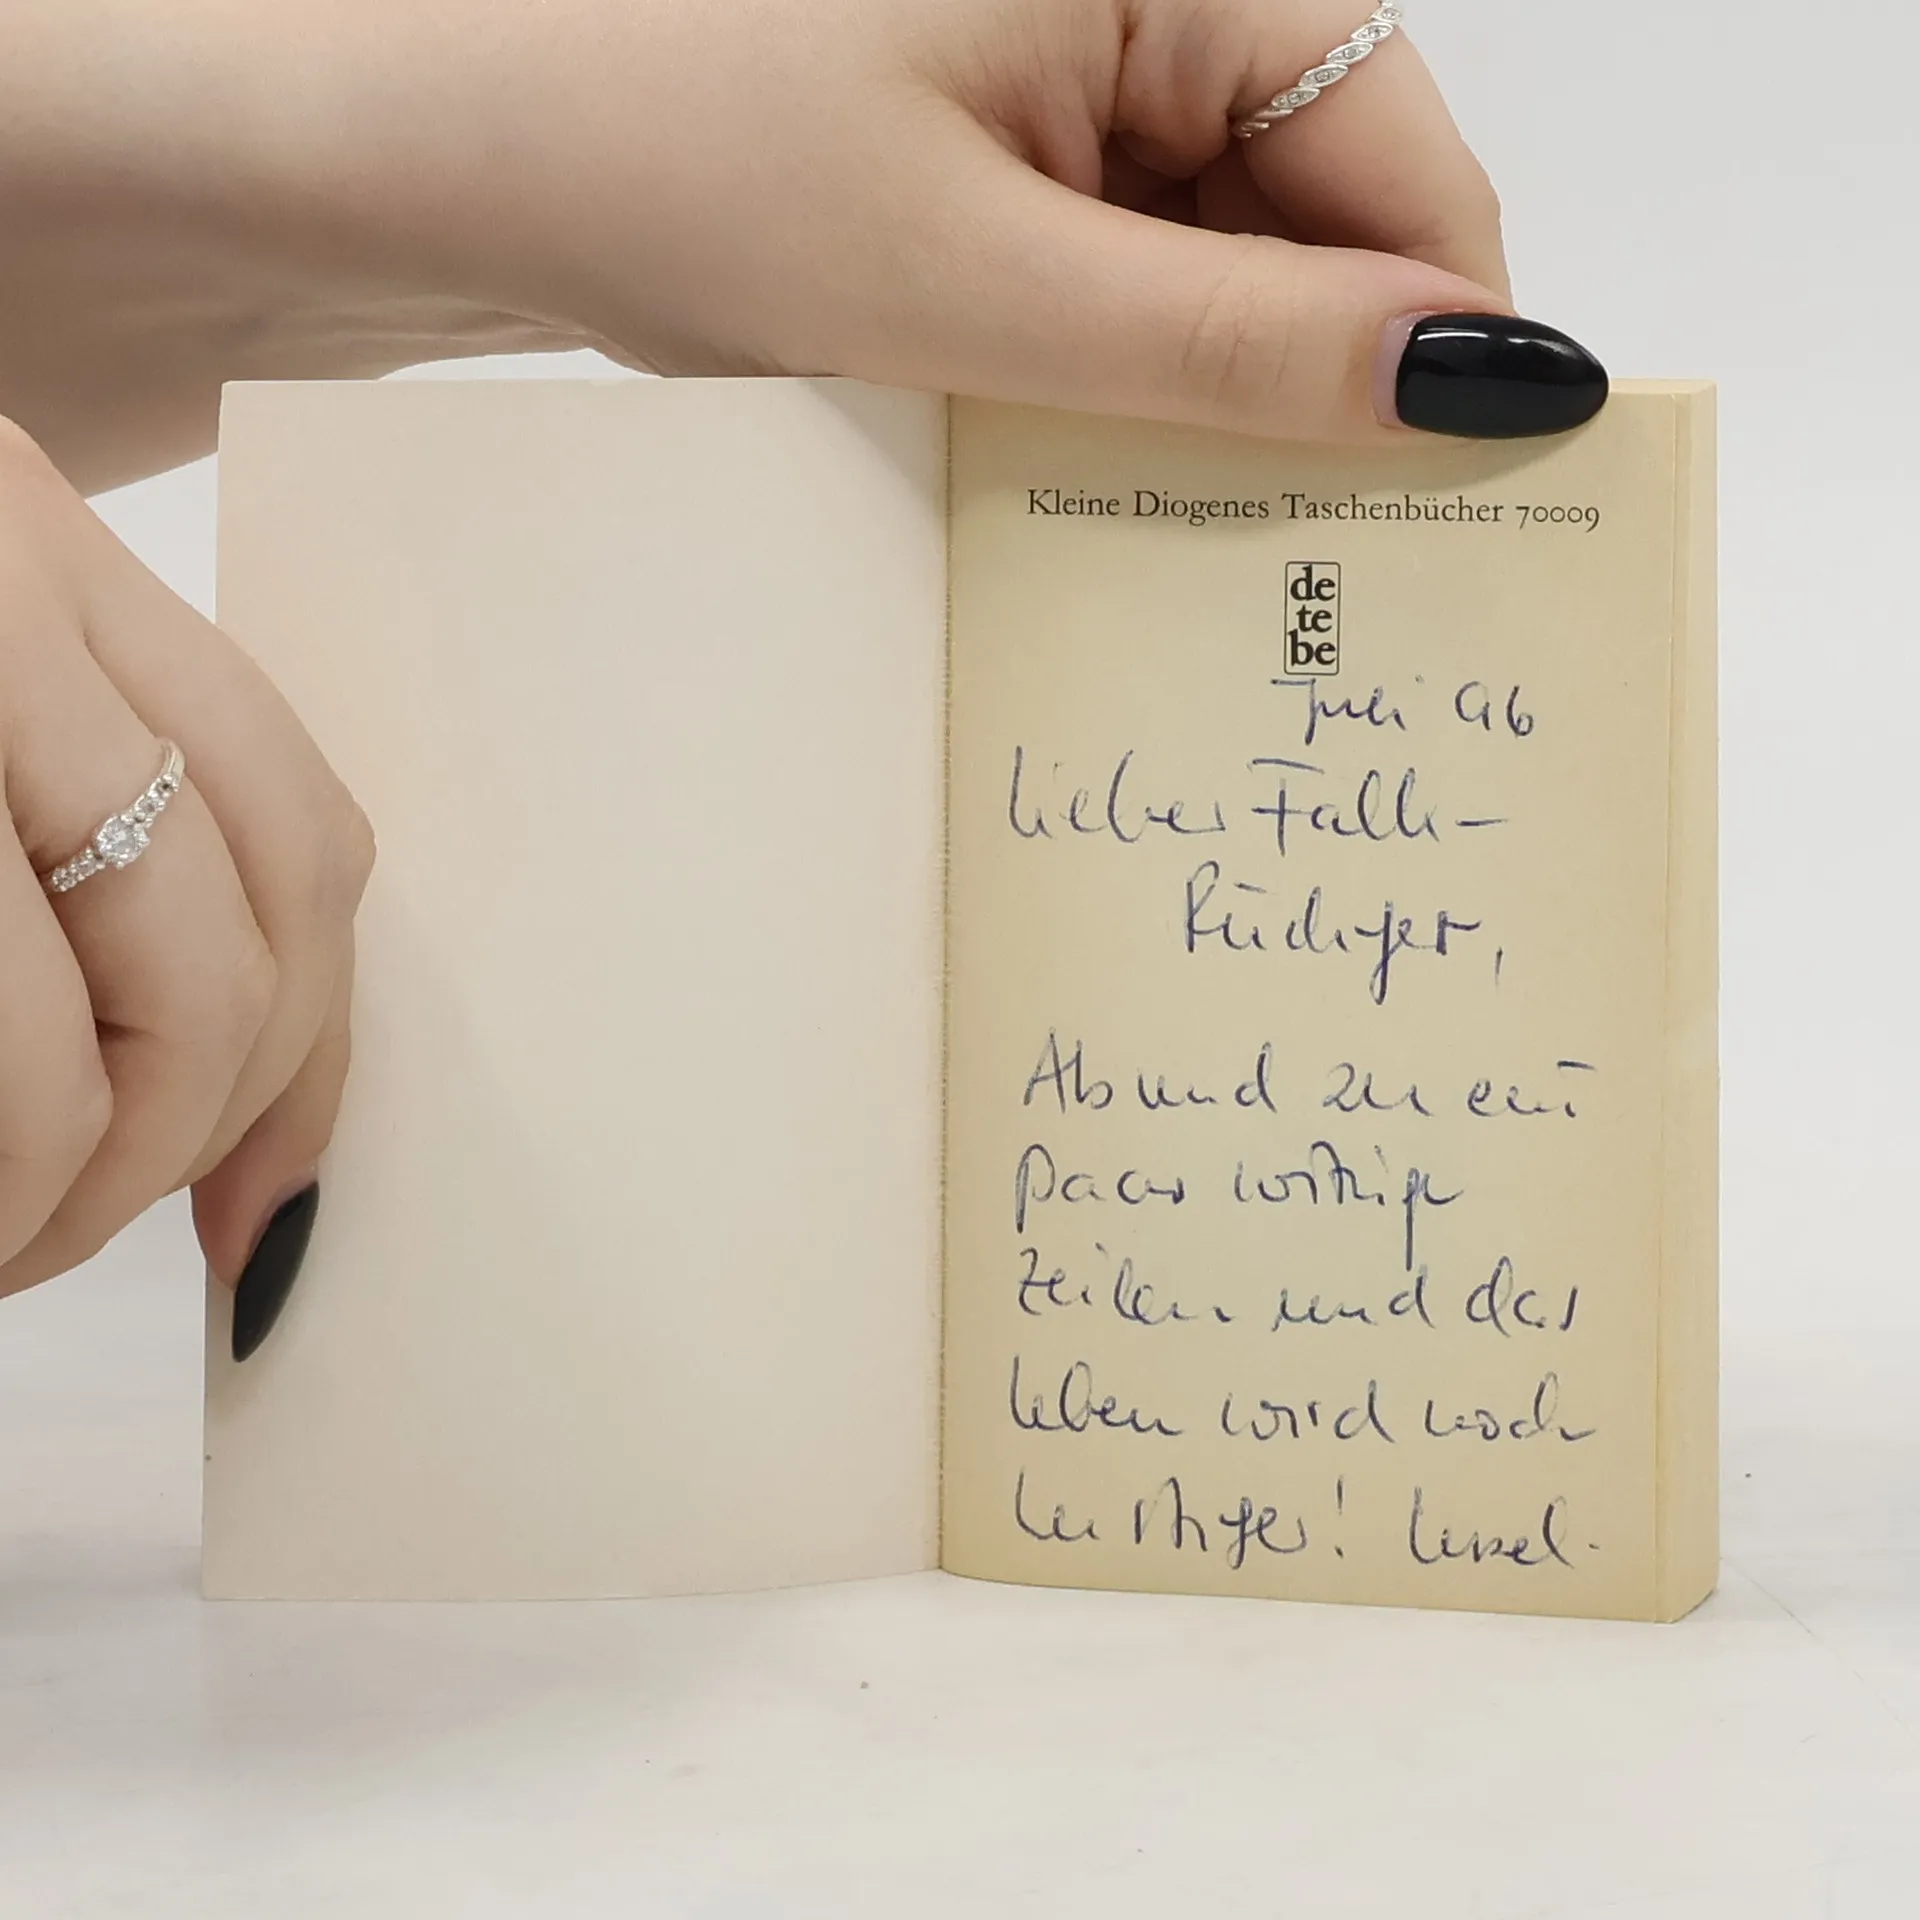 Kleine Diogenes Taschenbücher 70009
de
te
be
Juli 96
Lieber Falk-
Rüdiger,
Ab und zu ein
paar witzige
Zeilen und das
Leben wird noch
lustiger!